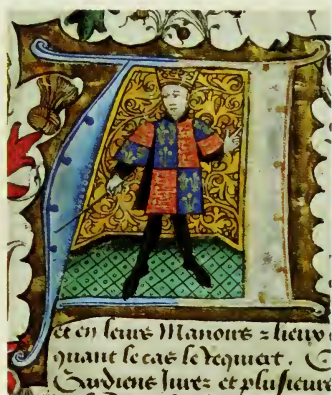 et en leurs Manoirs ⁊ lieux
quant le cas le requiert.
Gardiens Jurez et plusieurs